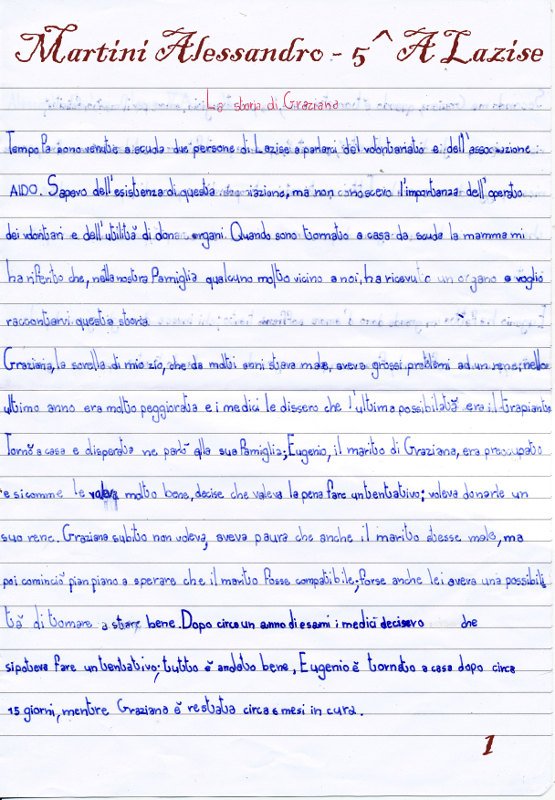 Martini Alessandro - 5^ A Lazise
La storia di Graziana
Tempo fa sono venute a scuola due persone di Lazise a parlarci del volontariato e dell'associazione
AIDO. Sapevo dell'esistenza di questa associazione, ma non conoscevo l'importanza dell'operato
dei volontari e dell'utilità di donare organi. Quando sono tornato a casa da scuola la mamma mi
ha riferito che, nella nostra famiglia qualcuno molto vicino a noi, ha ricevuto un organo e voglio
raccontarvi questa storia.
Graziana, la sorella di mio zio, che da molti anni stava male, aveva grossi problemi ad un rene; nello
ultimo anno era molto peggiorata e i medici le dissero che l'ultima possibilità era il trapianto
Tornò a casa e disperata ne parlò alla sua famiglia; Eugenio, il marito di Graziana, era preoccupato
e siccome le voleva molto bene, decise che valeva la pena fare un tentativo: voleva donarle un
suo rene. Graziana subito non voleva, aveva paura che anche il marito stesse male, ma
poi cominciò pian piano a sperare che il marito fosse compatibile; forse anche lei aveva una possibili
tà di tornare a stare bene. Dopo circa un anno di esami i medici decisero che
si poteva fare un tentativo; tutto è andato bene, Eugenio è tornato a casa dopo circa
15 giorni, mentre Graziana è restata circa 6 mesi in cura.
1